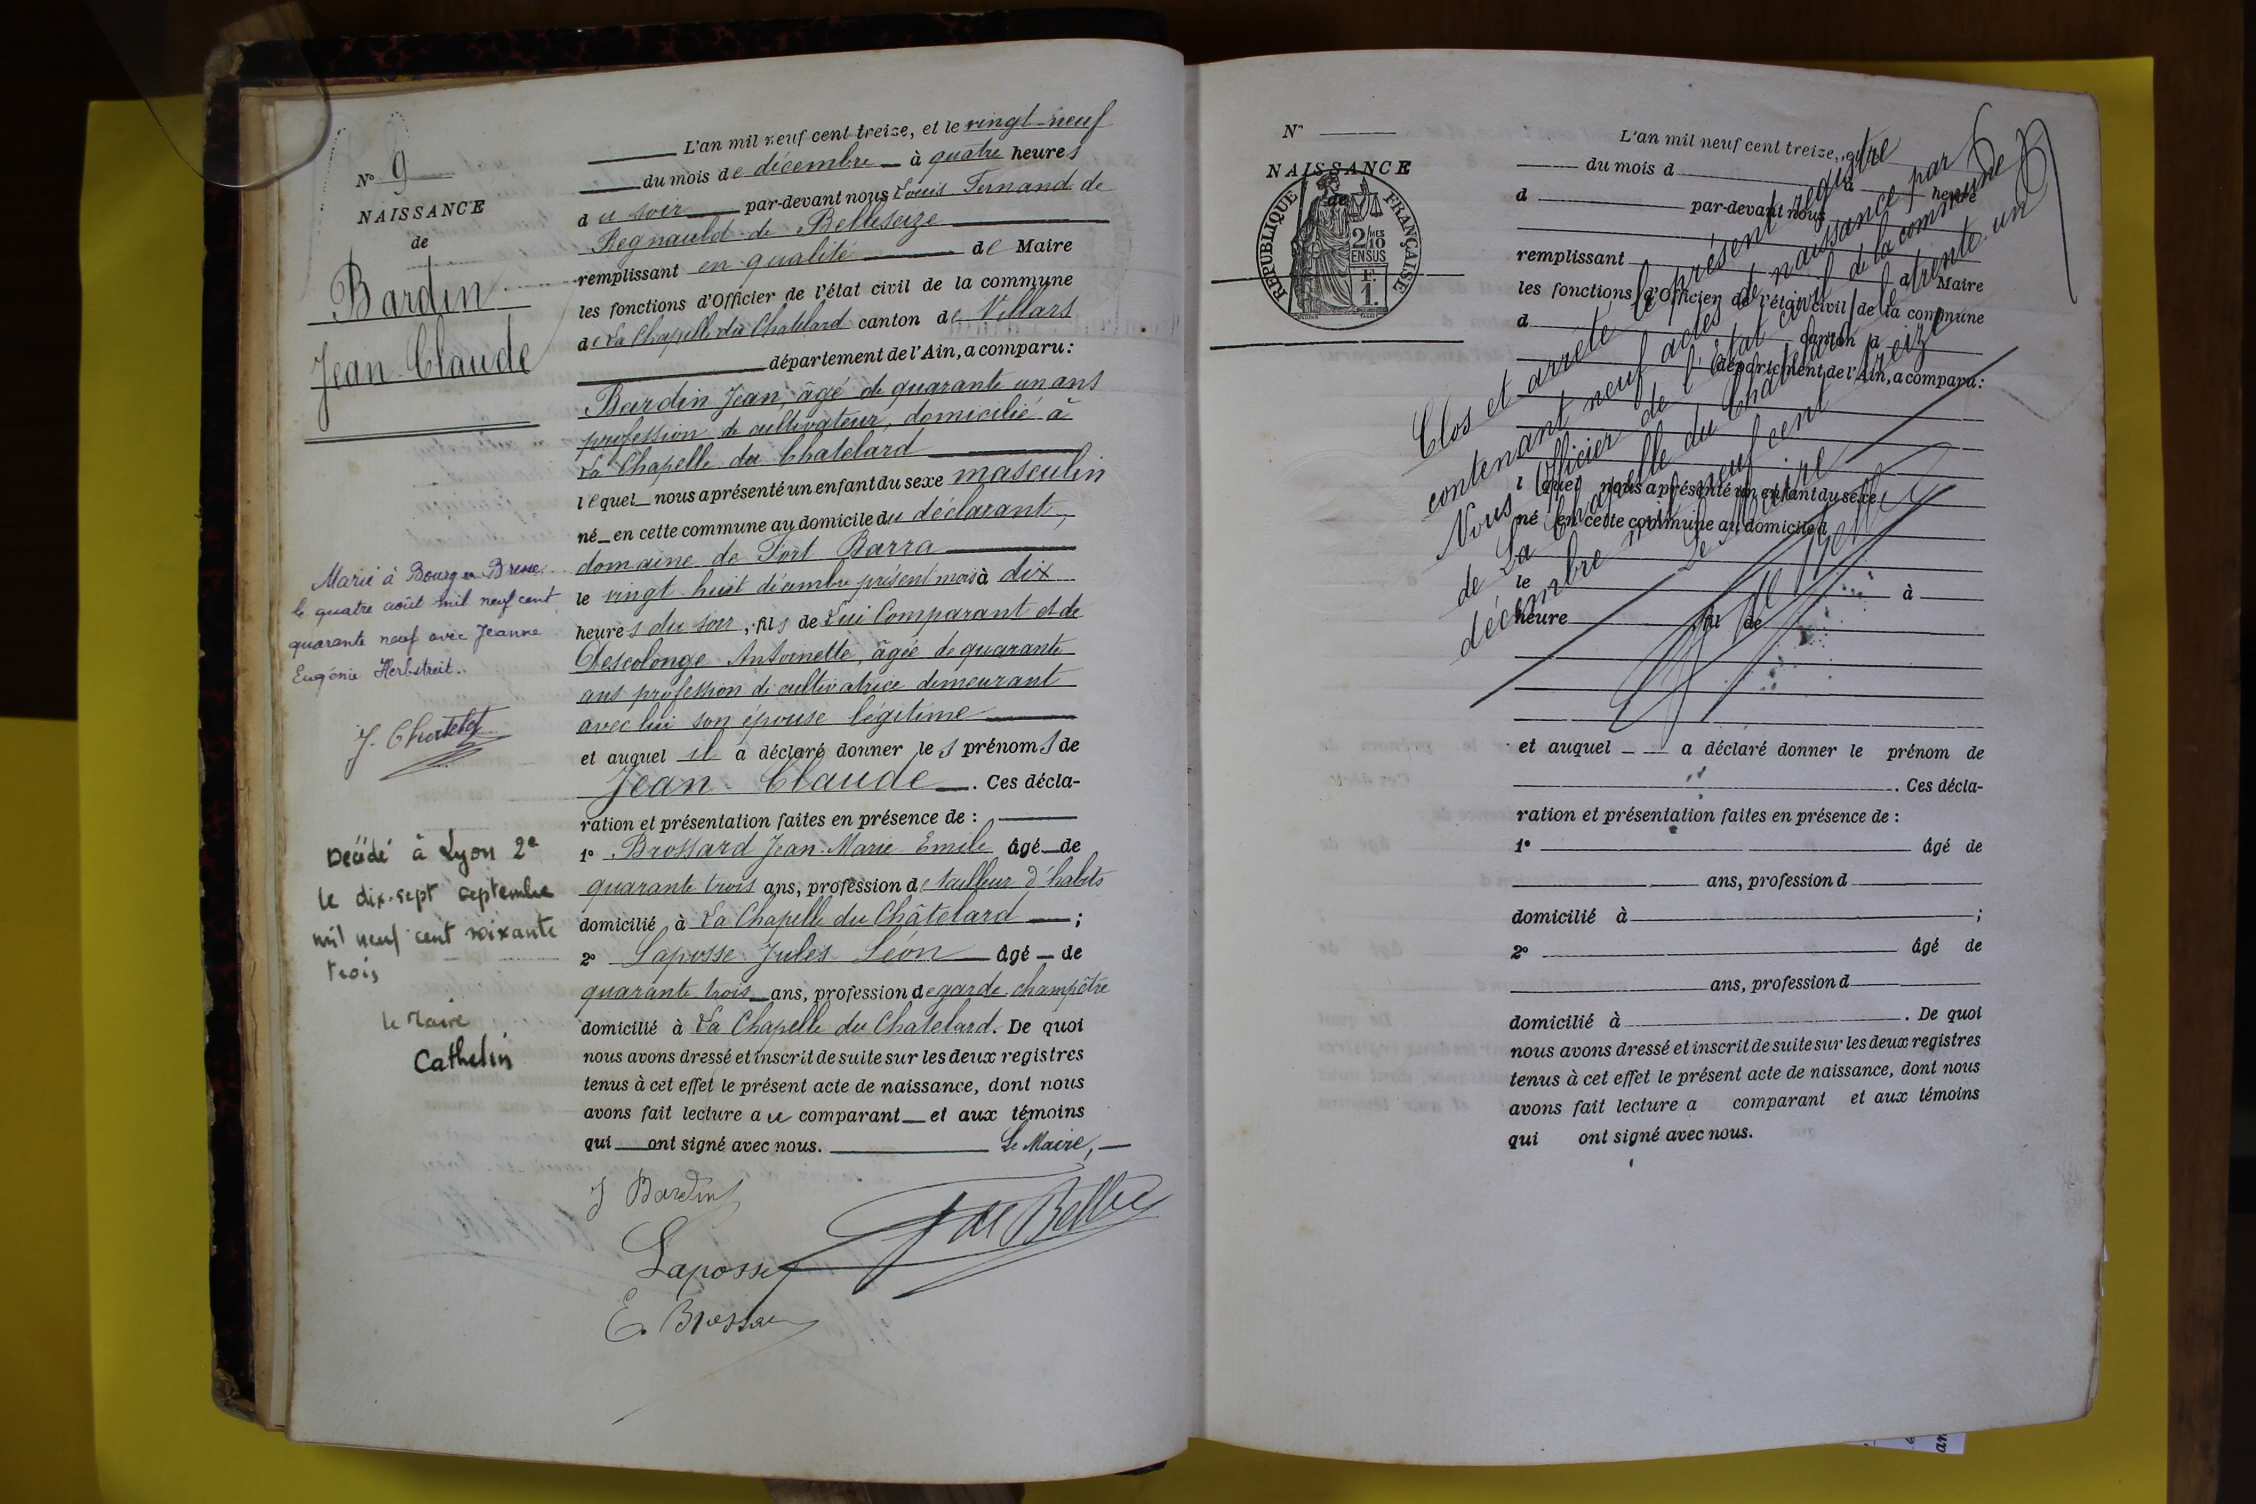 N° 9
NAISSANCE
de
Bardin
Jean Claude
Marié à Bourg en Bresse
le quatre août mil neuf cent
quarante neuf avec Jeanne
Eugénie Herbstreit.
J. Chatelet
Décédé à Lyon 2e
le dix-sept septembre
mil neuf cent soixante
trois
le Maire
Cathelin
L'an mil neuf cent treize, et le vingt-neuf
du mois de décembre à quatre heures
du soir par-devant nous Louis Fernand de
Regnauld de Bellescize
remplissant en qualité de Maire
les fonctions d'Officier de l'état civil de la commune
de La Chapelle du Chatelard canton de Villars
département de l'Ain, a comparu:
Bardin Jean, âgé de quarante un ans
profession de cultivateur, domicilié à
La Chapelle du Chatelard
lequel nous a présenté un enfant du sexe masculin
né en cette commune au domicile du déclarant,
domaine de Fort Barra
le vingt huit décembre présent mois à dix
heures du soir, fils de Lui Comparant et de
Descolonge Antoinette, âgée de quarante
ans profession de cultivatrice demeurant
avec lui son épouse légitime
et auquel il a déclaré donner les prénoms de
Jean Claude. Ces décla-
ration et présentation faites en présence de :
1° Brossard Jean Marie Emile âgé de
quarante trois ans, profession de tailleur d'habits
domicilié à La Chapelle du Châtelard ;
2° Laposse Jules Léon âgé de
quarante trois ans, profession de garde champêtre
domicilié à La Chapelle du Chatelard. De quoi
nous avons dressé et inscrit de suite sur les deux registres
tenus à cet effet le présent acte de naissance, dont nous
avons fait lecture au comparant et aux témoins
qui ont signé avec nous. Le Maire,
J Bardin
Laposse
E. Brossard
N°
NAISSANCE
de
RÉPUBLIQUE FRANÇAISE
2/10 MES
EN SUS
F.
1
L'an mil neuf cent treize, et le
du mois d à heure
d par-devant nous
remplissant d Maire
les fonctions d'Officier de l'état civil de la commune
d canton d
département de l'Ain, a comparu:
l quel nous a présenté un enfant du sexe
né en cette commune au domicile d
le à
heure fil de
et auquel a déclaré donner le prénom de
. Ces décla-
ration et présentation faites en présence de :
1° âgé de
ans, profession d
domicilié à ;
2° âgé de
ans, profession d
domicilié à . De quoi
nous avons dressé et inscrit de suite sur les deux registres
tenus à cet effet le présent acte de naissance, dont nous
avons fait lecture a comparant et aux témoins
qui ont signé avec nous.
Clos et arrêté le présent registre
contenant neuf actes de naissance par
Nous Officier de l'état civil de la commune
de La Chapelle du Chatelard le trente un
décembre mil neuf cent treize
Le Maire